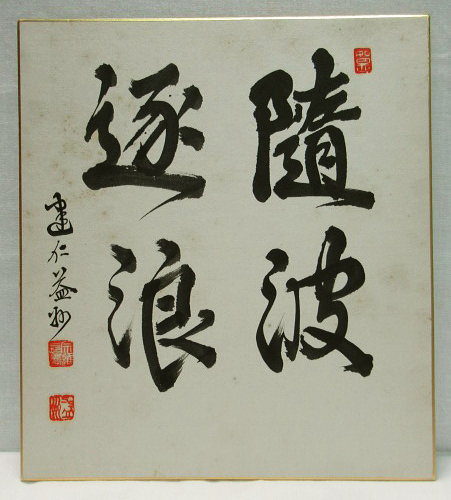 隨波
逐浪
建仁益州